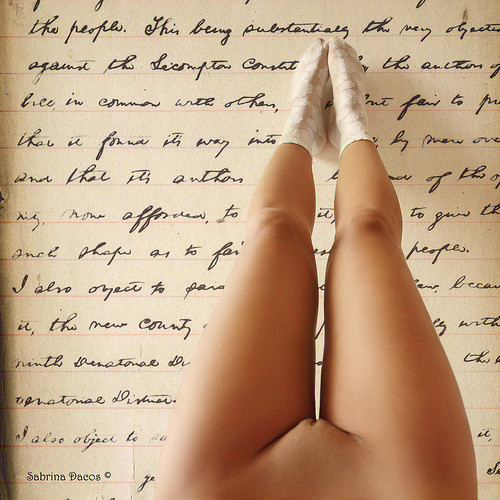 the people. This being substantially the very objection
against the Lecompton Constit by the authors of
bill in common with others, but fair to pr
that it found its way into by mere over
and that its authors of the o
none afforded, to it, to give th
such shape as to fai people.
I also object to becau
it, the new County with
ninth Senatorial Di the
Senatorial District.
I also object to it,
Sabrina Dacos ©